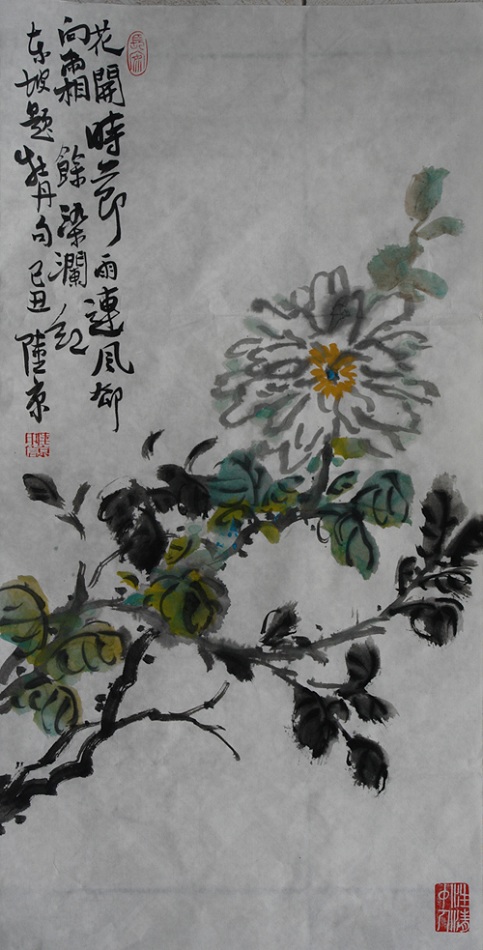 花開時節雨連風却
向霜餘染瀾紅
东坡题牡丹句己丑陸京